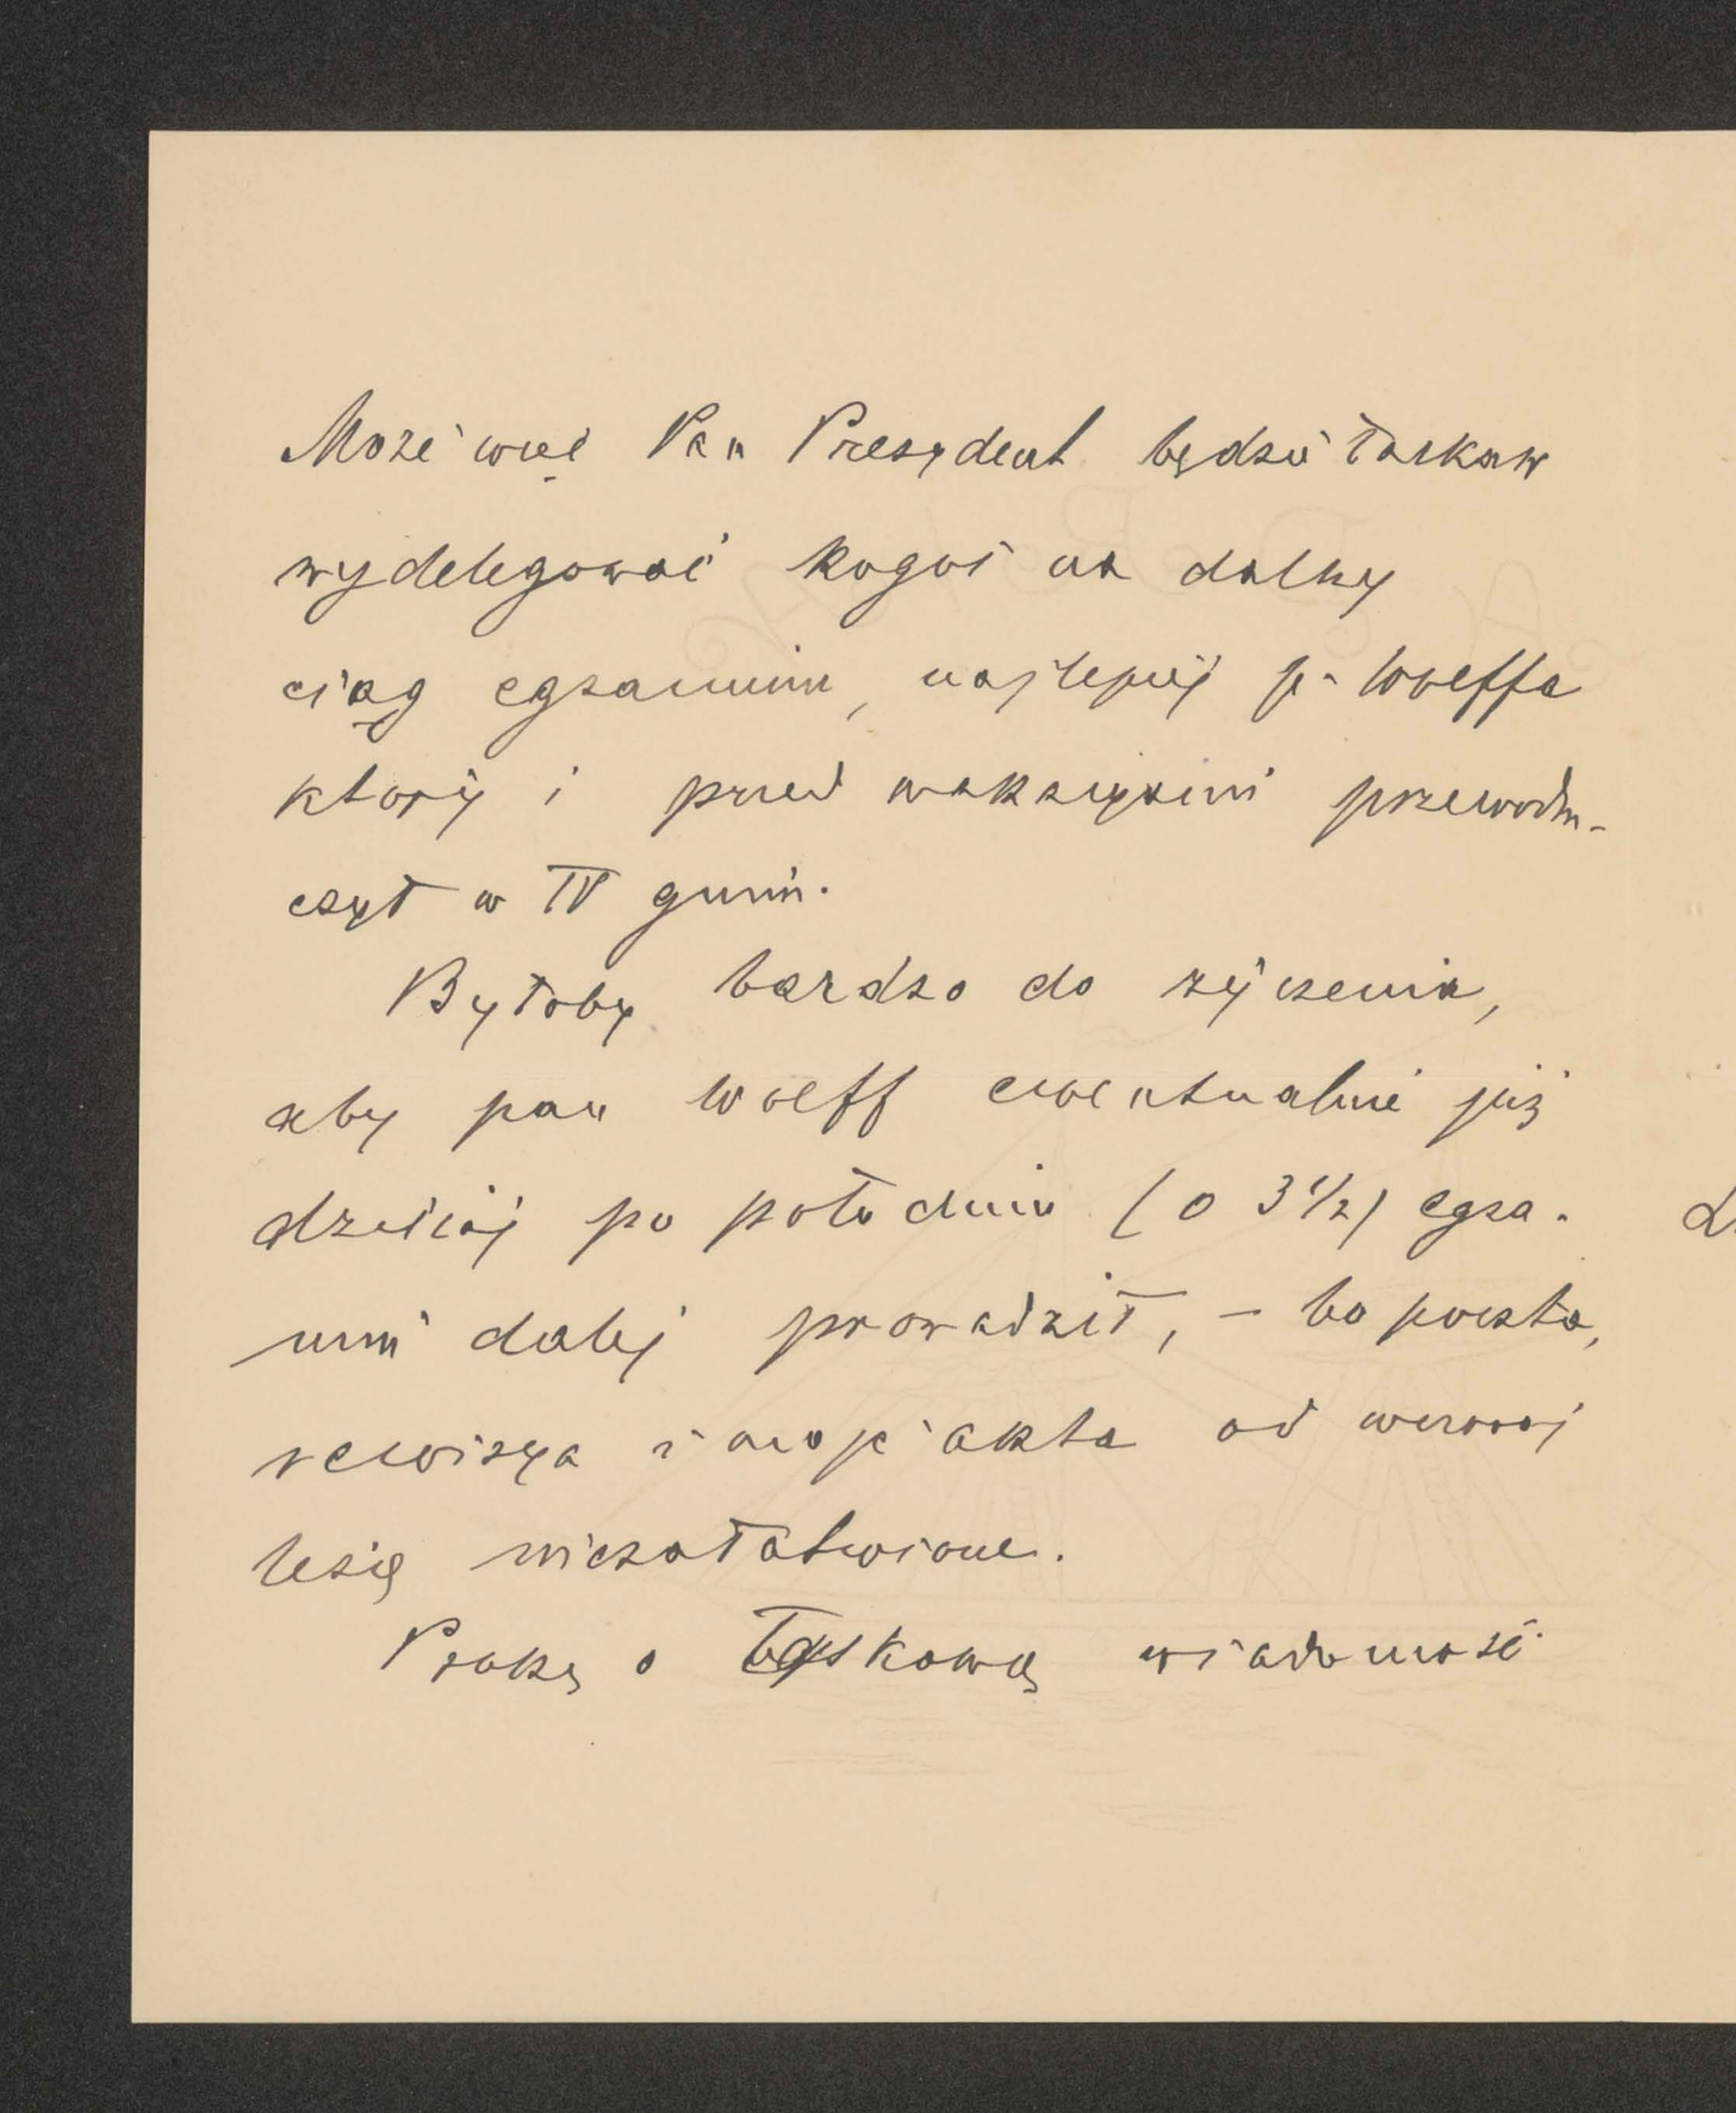 Może więc Pan Prezydent będzie łaskaw
wydelegować kogoś na dalszy
ciąg egzaminu, najlepiej p. Wolffa
który i przed wakacyami przewodni-
czył w IV gimn.
Byłoby bardzo do życzenia,
aby pan Wolff ewentualnie już
dzisiaj po południu (o 3 1/2) egza-
min dalej prowadził, – bo poczta,
rewizya i moje akta od wczoraj
leżą niezałatwione.
Proszę o łaskawą wiadomość